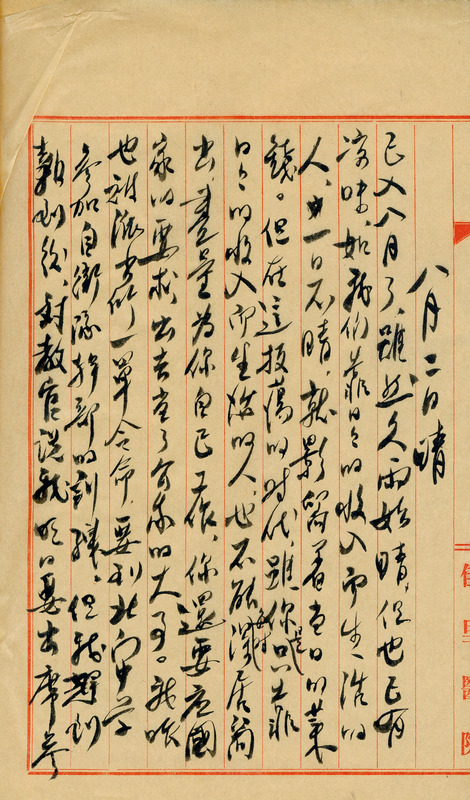 八月二日 晴
已入八月了，雖然久雨始晴，但也已有
涼味，如我們靠日日的收入而生活的
人，一日不晴，就影響着當日的菜
錢。但在這板蕩的時代，雖你是只靠
日日的收入而生活的人，也不能深居簡
出，盡量為你自己工作，你還要應國
家的要求，出去當了分外的大事。我昨
也被派出所一單命令，要到北門中學
參加自衛隊幹部的訓練。但我趕到
報到後，對教官說我明日要出席參